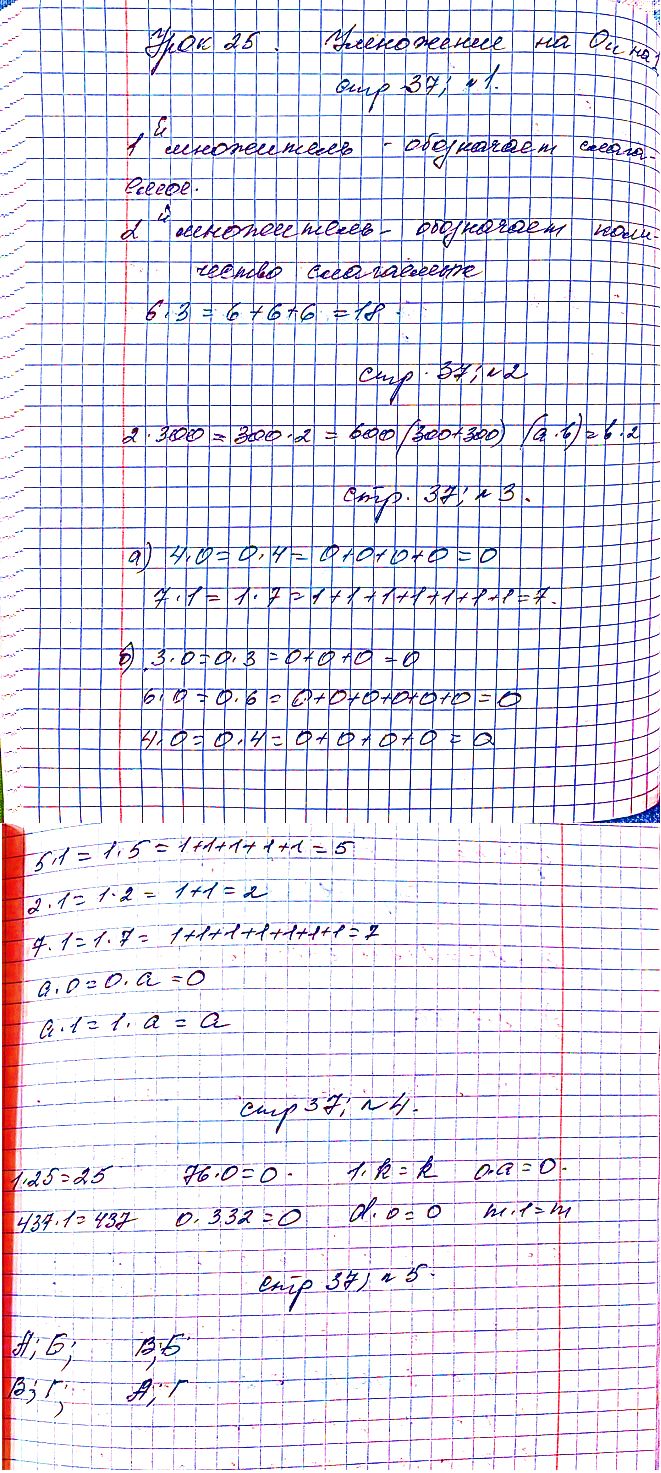 Урок 25. Умножение на 0 и на 1
стр 37; №1.
1й множитель - обозначает слага-
емое.
2й множитель - обозначает коли-
чество слагаемых
6·3 = 6+6+6 = 18.
стр. 37; №2
2·300 = 300·2 = 600 (300+300) (a·b) = b·2
стр. 37; №3.
а) 4·0 = 0·4 = 0+0+0+0 = 0
7·1 = 1·7 = 1+1+1+1+1+1+1 = 7.
б) 3·0 = 0·3 = 0+0+0 = 0
6·0 = 0·6 = 0+0+0+0+0+0 = 0
4·0 = 0·4 = 0+0+0+0 = 0
5·1 = 1·5 = 1+1+1+1+1 = 5
2·1 = 1·2 = 1+1 = 2
7·1 = 1·7 = 1+1+1+1+1+1+1 = 7
a·0 = 0·a = 0
a·1 = 1·a = a
стр 37; №4.
1·25 = 25 76·0 = 0. 1·k = k 0·a = 0.
437·1 = 437 0·332 = 0 d·0 = 0 m·1 = m
стр 37; №5.
А; Б; В; Б
В; Г; А; Г